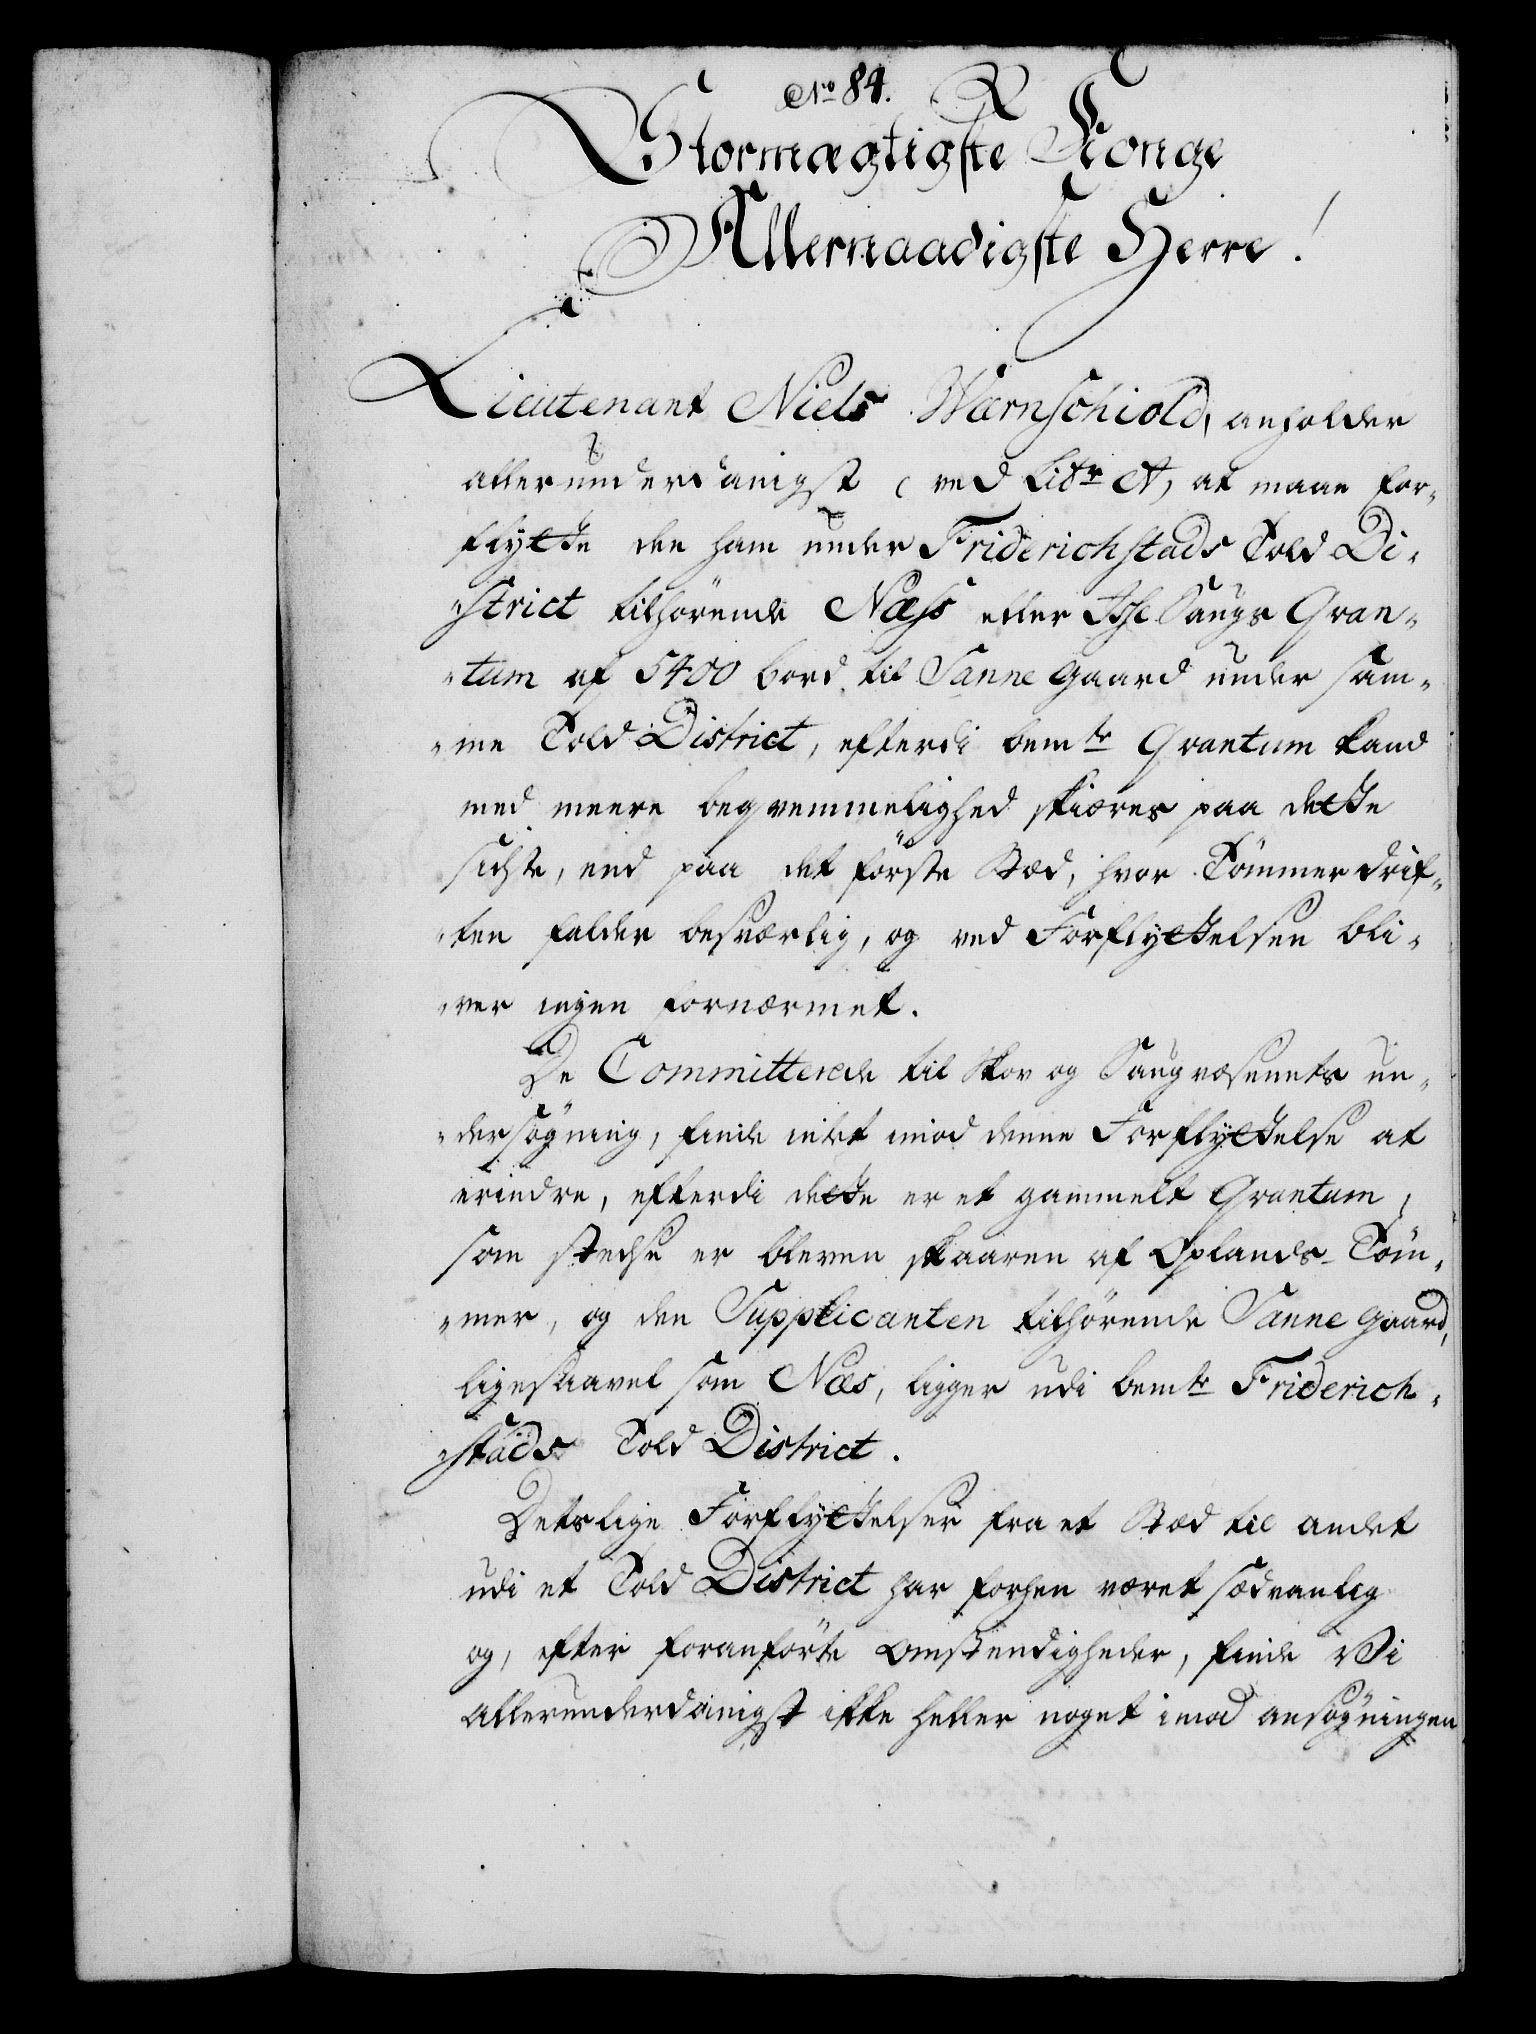 No 84.
Stormægtigste Konge
Allernaadigste Herre!
Lieutenant Niels Wærnschiold, anholder
allerunderdanigst ved Litr A, at maae for-
flytte den ham under Friderichstads Told Di-
strict tilhörende Næss eller Ise Saugs Qvan-
tum af 5400 bord til Sanne gaard under sam-
me Told District, efterdi bemte Qvantum kand
med meere beqvemmelighed skiæres paa dette
sidste, end paa det förste Stæd, hvor Tömmer drif-
ten falder besværlig, og ved Forflyttelsen bli-
ver ingen fornærmet.
De Committerede til Skov og Saugvæsenets un-
dersögning, finde intet imod denne Forflyttelse at
erindre, efterdi dette er et gammelt Qvantum,
som stedse er bleven skaaren af Oplands Töm-
mer, og den Supplicanten tilhörende Sanne gaard,
ligesaavel som Næs, ligger udi bemte Friderich-
stads Told District.
Detslige Forflyttelser fra et Stæd til andet
udi et Told District har forhen været sædvanlig
og, efter foranförte Omstændigheder, finde Vi
allerunderdanigst ikke heller noget imod ansögningen